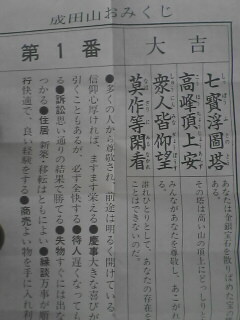 成田山おみくじ
第1番 大吉
七寳浮圖塔
高峰頂上安
衆人皆仰望
莫作等閑看
あなたは金銀宝石を散りばめた宝の
その塔は高い山の頂上にどっしりと
みんながあなたを尊敬し、あこがれ
誰ひとりとして、あなたの存在を
ことはできないのだ。
●多くの人から尊敬され、前途は明るく開けている。
信仰心厚ければ、ますます栄える●慶事大きな喜びが
引くこともあるが、必ず全快する●待人遅くなって
る●訴訟思い通りの結果で勝てる●失物すぐには出な
つかる●住居 新築・移転はともによい●縁談万事が順
行快適で、良い経験をする●商売よい物を手に入れ利